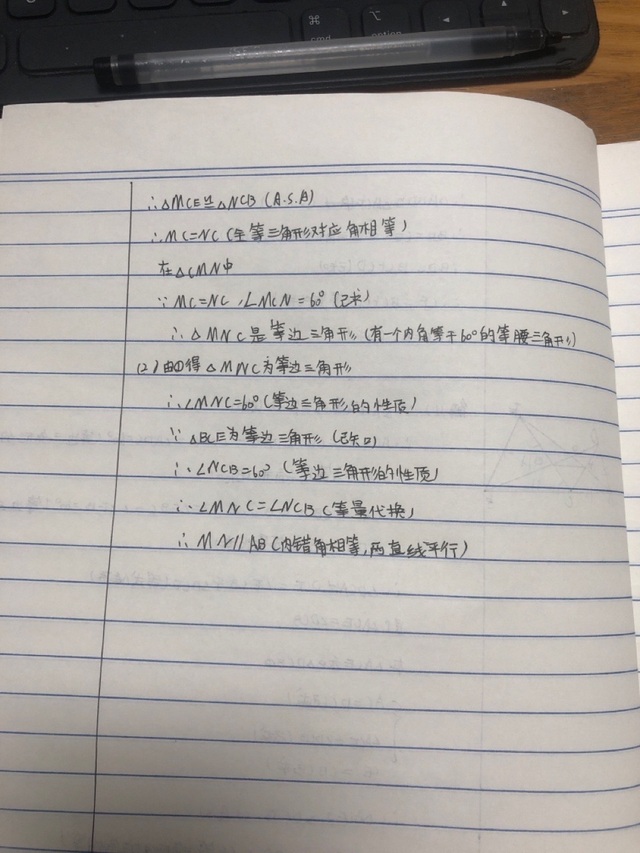 ⌘
cmd
⌥
option
∴△MCE≌△NCB (A.S.A)
∴MC=NC (全等三角形对应角相等)
在△CMN中
∵MC=NC,∠MCN=60°(已求)
∴△MNC是等边三角形(有一个内角等于60°的等腰三角形)
(2)由①得△MNC为等边三角形
∴∠MNC=60°(等边三角形的性质)
∵△BCE为等边三角形(已知)
∴∠NCB=60° (等边三角形的性质)
∴∠MNC=∠NCB(等量代换)
∴MN//AB(内错角相等,两直线平行)